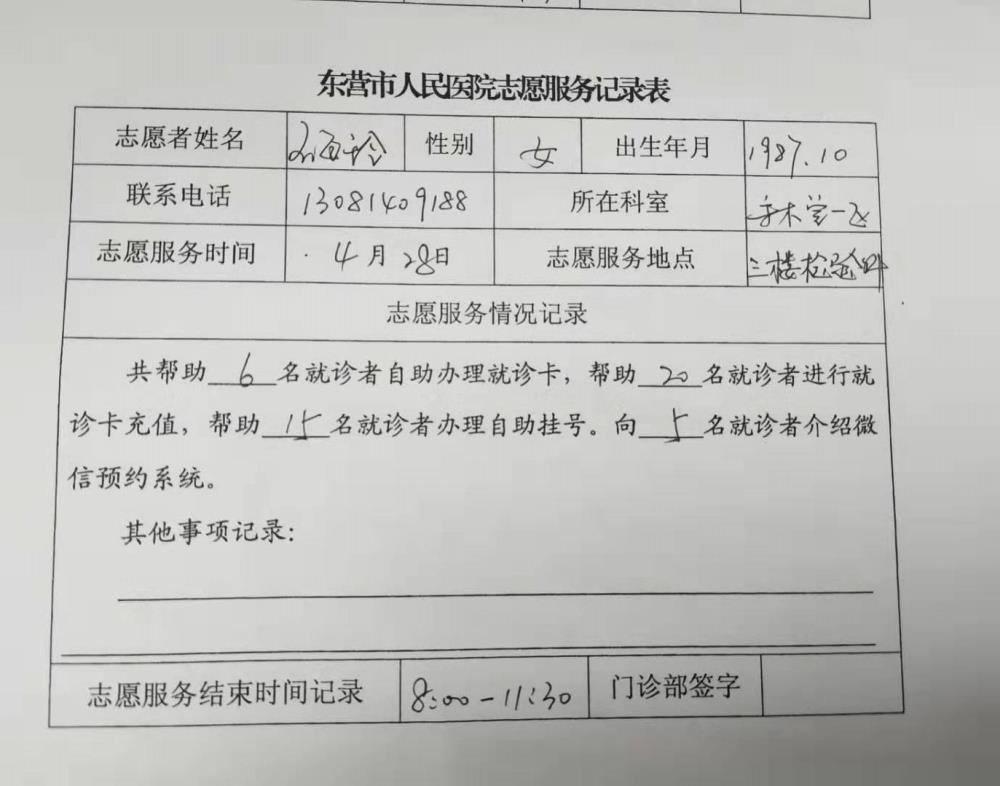 东营市人民医院志愿服务记录表
志愿者姓名 性别 女 出生年月 1987.10
联系电话 13081409188 所在科室
志愿服务时间 4月28日 志愿服务地点 三楼检验科
志愿服务情况记录
共帮助 6 名就诊者自助办理就诊卡，帮助 20 名就诊者进行就
诊卡充值，帮助 15 名就诊者办理自助挂号。向 5 名就诊者介绍微
信预约系统。
其他事项记录：
志愿服务结束时间记录 8:00-11:30 门诊部签字